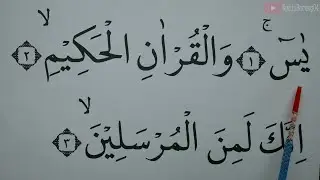 يٰسٓ ۚ ﴿١﴾ وَالْقُرْاٰنِ الْحَكِيْمِ ۙ ﴿٢﴾
اِنَّكَ لَمِنَ الْمُرْسَلِيْنَ ۙ ﴿٣﴾